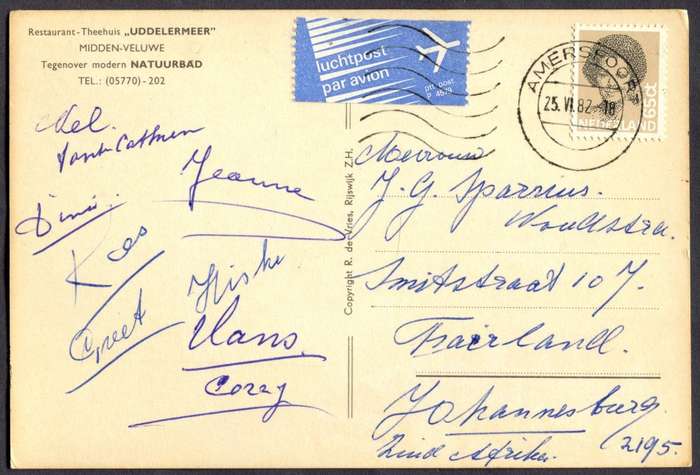 Restaurant-Theehuis „UDDELERMEER”
MIDDEN-VELUWE
Tegenover modern NATUURBAD
TEL.: (05770) - 202
luchtpost
par avion
ptt post
P 4579
AMERSFOORT
25.VI.82-18
NEDERLAND
65ct
Nel.
Tante Cathrien
Jeanne
Dini.
Roos
Hiske
Greet
Hans.
Corry
Copyright R. de Vries, Rijswijk Z.H.
Mevrouw
J. G. Sparrius.
Woudstra.
Smitstraat 107.
Fairland.
Johannesburg.
2195.
Zuid Afrika.